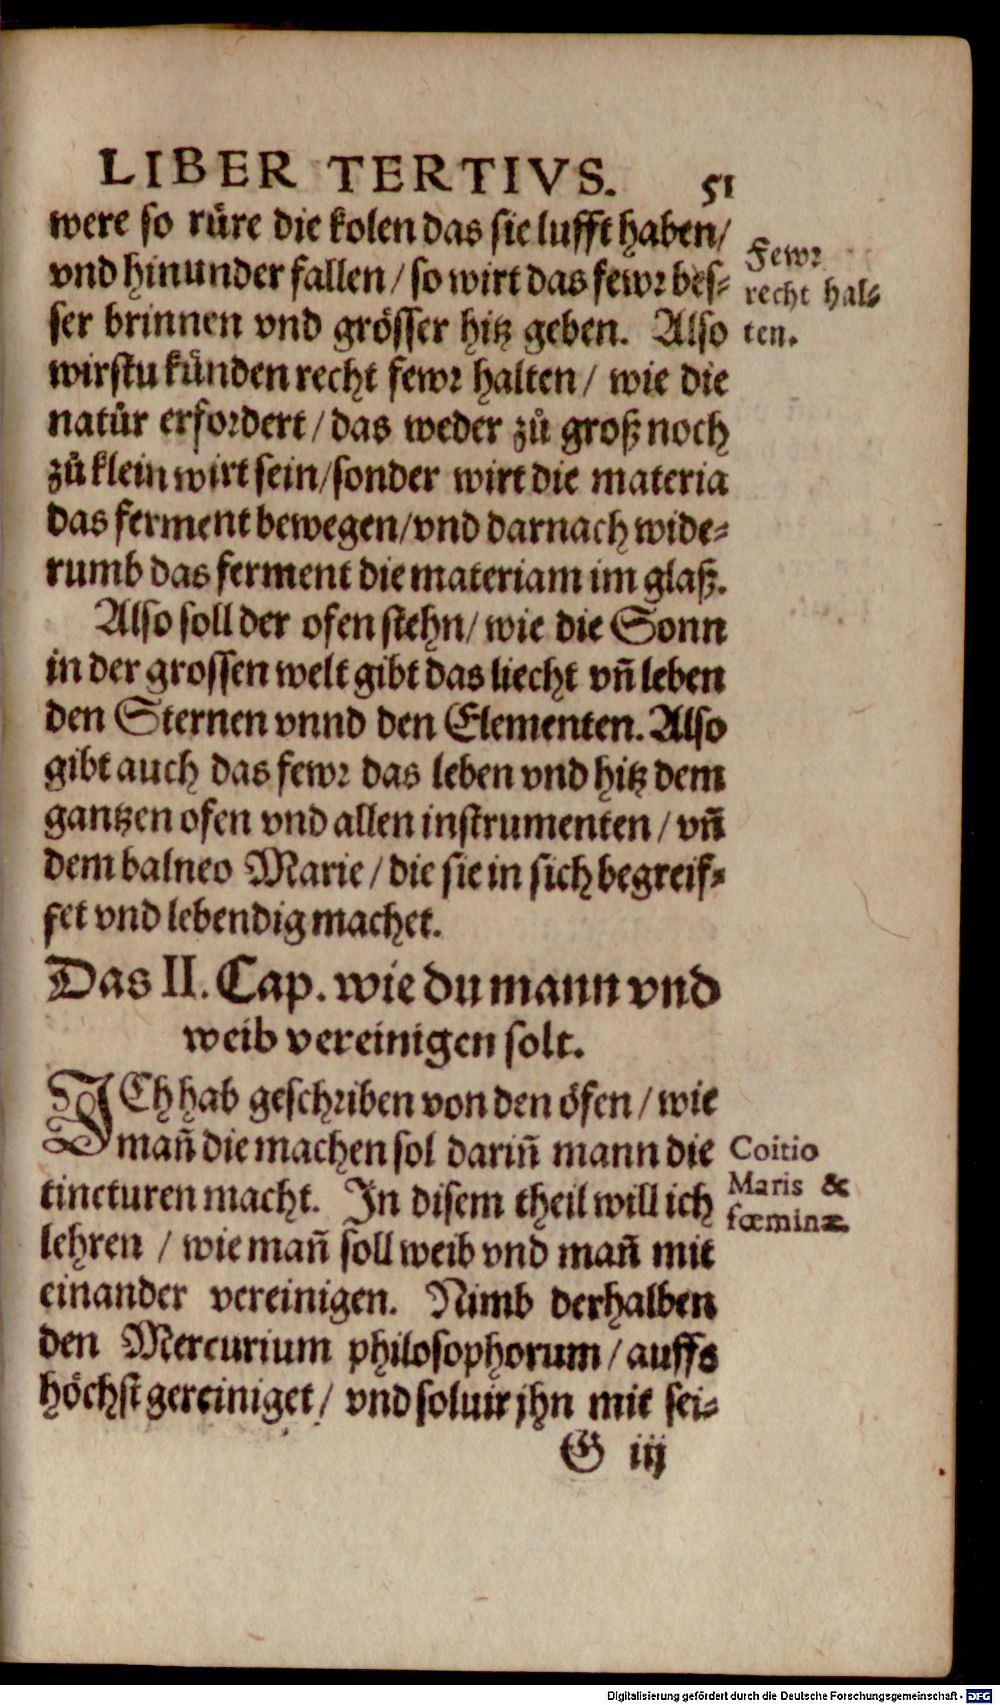 LIBER TERTIVS. 51
were so rüre die kolen das sie lufft haben/
vnd hinunder fallen/ so wirt das fewr bes-
ser brinnen vnd grösser hitz geben. Also
wirstu künden recht fewr halten/ wie die
natůr erfordert/ das weder zů groß noch
zů klein wirt sein/ sonder wirt die materia
das ferment bewegen/ vnd darnach wide-
rumb das ferment die materiam im glaß.
Also soll der ofen stehn/ wie die Sonn
in der grossen welt gibt das liecht vñ leben
den Sternen vnnd den Elementen. Also
gibt auch das fewr das leben vnd hitz dem
gantzen ofen vnd allen instrumenten/ vñ
dem balneo Marie/ die sie in sich begreif-
fet vnd lebendig machet.
Das II. Cap. wie du mann vnd
weib vereinigen solt.
ICh hab geschriben von den öfen/ wie
mañ die machen sol dariñ mann die
tincturen macht. In disem theil will ich
lehren / wie mañ soll weib vnd mañ mit
einander vereinigen. Nimb derhalben
den Mercurium philosophorum/ auffs
höchst gereiniget/ vnd soluir jhn mit sei-
G iij
Fewr
recht hal-
ten.
Coitio
Maris &
fœminæ.
Digitalisierung gefördert durch die Deutsche Forschungsgemeinschaft - DFG